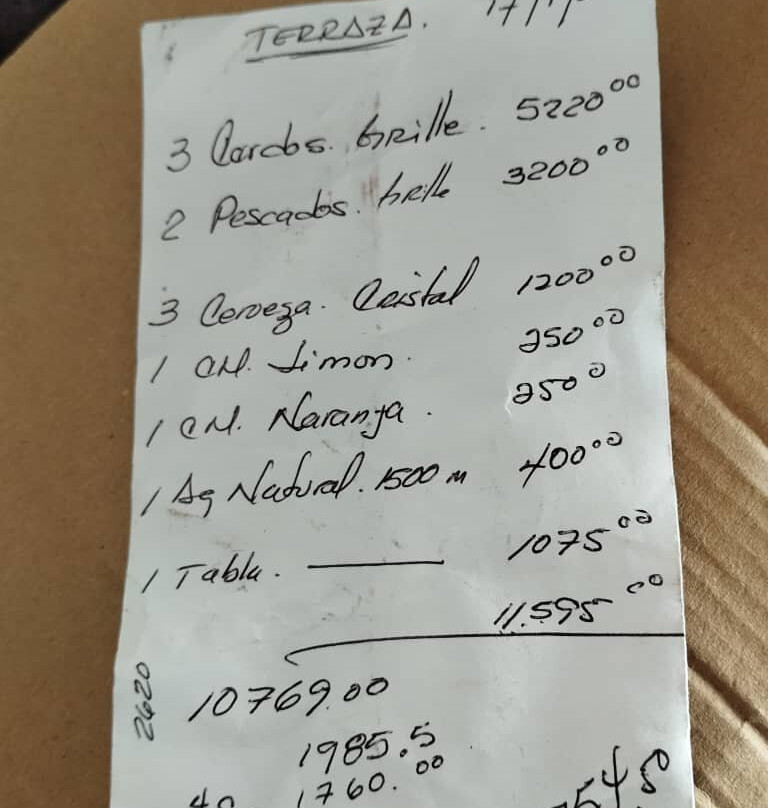 TERRAZA. 17/11
3 Cerdos. Grille. 5220 00
2 Pescados. Grille 3200 00
3 Cerveza. Cristal 1200 00
1 CM. Limon. 250 00
1 CM. Naranja. 250 0
1 Ag Natural. 1500 m 400 00
1 Tabla. 1075 00
11.595 00
2620
10769.00
1985.5
1760. 00